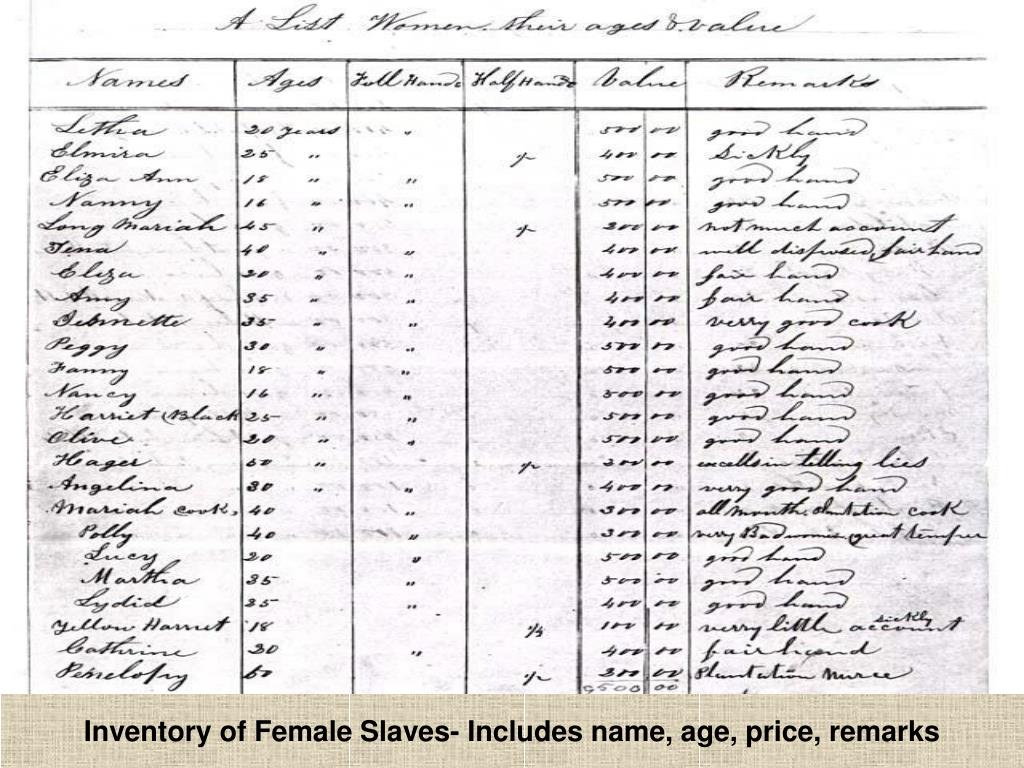 A List Women their ages & value
Names Ages Full Hands Half Hands Value Remarks
Letha 20 years " 500 00 good hand
Elmira 25 " 400 00 Sickly
Eliza Ann 18 " " 500 00 good hand
Nanny 16 " " 500 00 good hand
Long Mariah 45 " 200 00 not much account
Tena 40 " " 400 00 will disposed, fair hand
Eliza 20 " 400 00 fair hand
Amy 35 " " 400 00 fair hand
35 " " 400 00 verry good cook
Peggy 30 " " 500 00 good hand
Fanny 18 " " 500 00 good hand
Nancy 16 " " 500 00 good hand
Harriet (Black 25 " " 500 00 good hand
Olive 20 " " 500 00 good hand
Hager 50 " 200 00 excells in telling lies
Angelina 30 " " 400 00 very good hand
Mariah cook, 40 " 300 00 all mouth, cook
Polly 40 " 300 00 very great temper
Lucy 20 " 500 00 good hand
Martha 35 " 500 00 good hand
Lydid 25 " 400 00 good hand
sickly
Yellow Harriet 18 100 00 verry little account
Cathrine 30 " 400 00 fair
Penelopy 60 200 00 Plantation Nurce
9500 00
Inventory of Female Slaves- Includes name, age, price, remarks